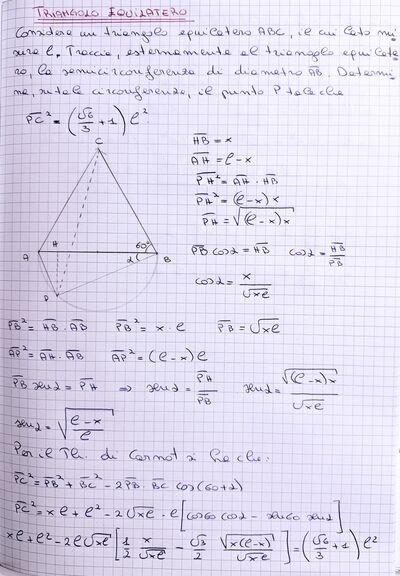 TRIANGOLO EQUILATERO
Considera un triangolo equilatero ABC, il cui lato mi
sura l. Traccia, esternamente al triangolo equilate
ro, la semicirconferenza di diametro AB. Determi
na, su tale circonferenza, il punto P tale che
PC² = (√6/3 + 1) l²
C
HB = x
AH = l - x
PH² = AH · HB
PH² = (l - x) x
PH = √(l - x)x
A H 60° B
α
P
PB cos α = HB cos α = HB/PB
cos α = x/√xl
PB² = HB · AB PB² = x · l PB = √xl
AP² = AH · AB AP² = (l - x) l
PB sen α = PH ⇒ sen α = PH/PB sen α = √(l - x)x/√xl
sen α = √(l - x)/l
Per il Th. di Carnot si ha che:
PC² = PB² + BC² - 2PB · BC cos(60 + α)
PC² = xl + l² - 2√xl · l [cos60 cos α - sen60 sen α]
xl + l² - 2l√xl [1/2 x/√xl - √3/2 √x(l - x)/√xl] = (√6/3 + 1) l²